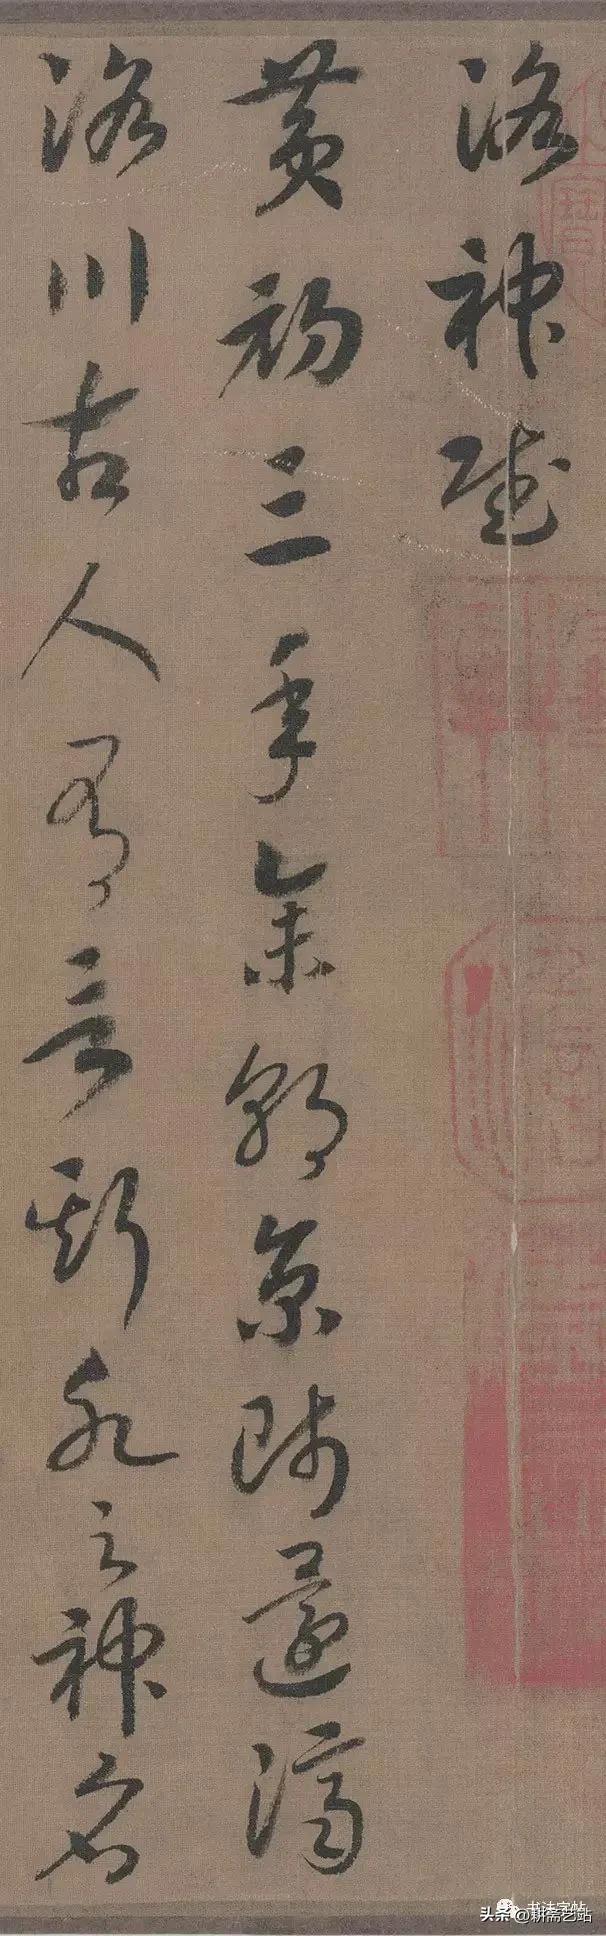 洛神賦
黃初三年余朝京師還濟
洛川古人有言斯水之神名
书法字帖
头条@耕斋艺站